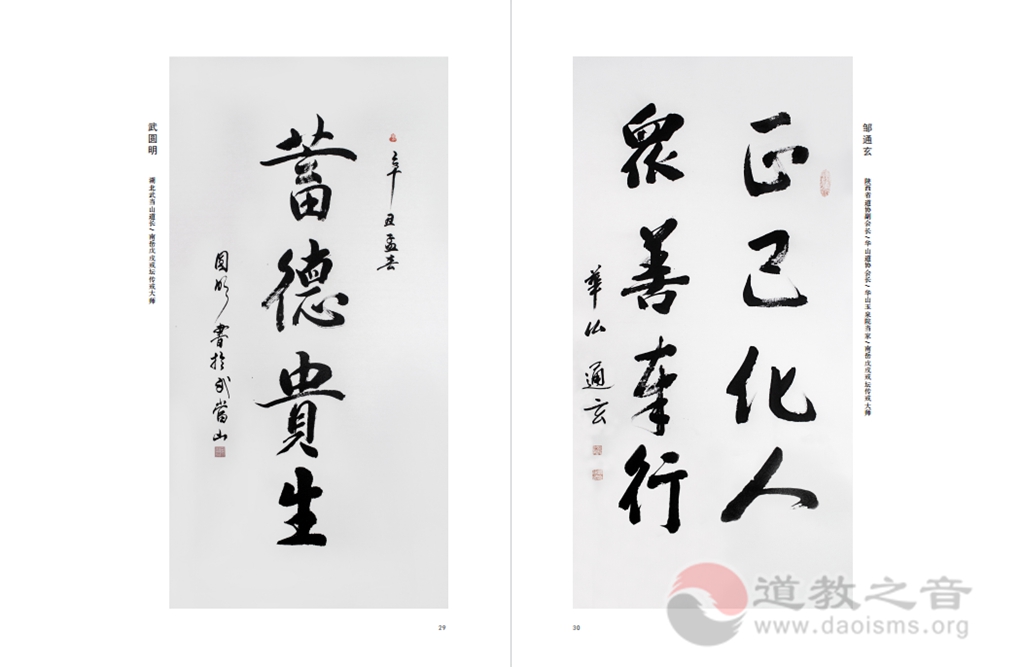 武圆明
湖北武当山道长/南岳戊戌戒坛传戒大师
辛丑孟春
蓄德貴生
圆明書於武當山
29
邹通玄
陕西省道协副会长/华山道协会长/华山玉泉院当家/南岳戊戌戒坛传戒大师
正己化人
眾善奉行
華 通玄
30
道教之音
www.daoisms.org